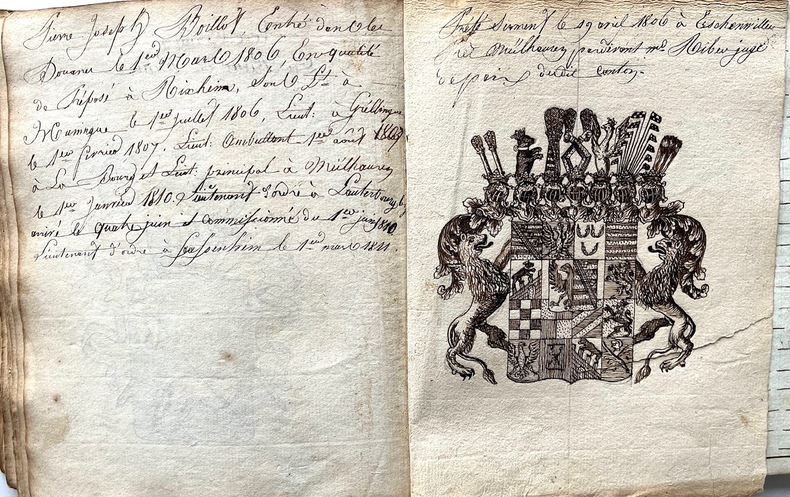 Pierre Joseph Boillot, Entré dans les
Douanes le 1er Mars 1806, En qualité
de Préposé à Rixheim, Sous Lt. à
le 1er Juillet 1806, Lieut: à
le 1er fevrier 1807. Lieut: Ambullant 1er août
à La Bourg et Lieut principal à Meülhausen
le 1er Janvier 1810. Lieutenant d'ordre à Lauterbourg
arivé le quatre juin et commissionné du 1er juin 1810
Lieutenant d'ordre à le 1er mars 1811.
Prêté Serment le 19 avril 1806 à Eschenwiller
près Meülhausen pardevant mr. Riber juge
de paix dudit canton.